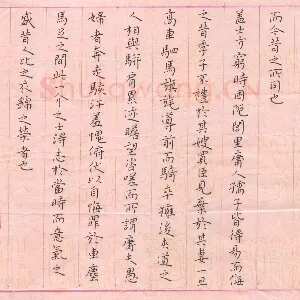 而今昔之所同也
蓋士方窮時困阨閭里庸人孺子皆得易而侮
之若季子不禮於其嫂買臣見棄於其妻一旦
高車駟馬旗旄導前而騎卒擁後夾道之
人相與駢肩累迹瞻望咨嗟而所謂庸夫愚
婦者奔走駭汗羞愧俯伏以自悔罪於車塵
馬足之間此一介之士得志於當時而意氣之
盛昔人比之衣錦之榮者也